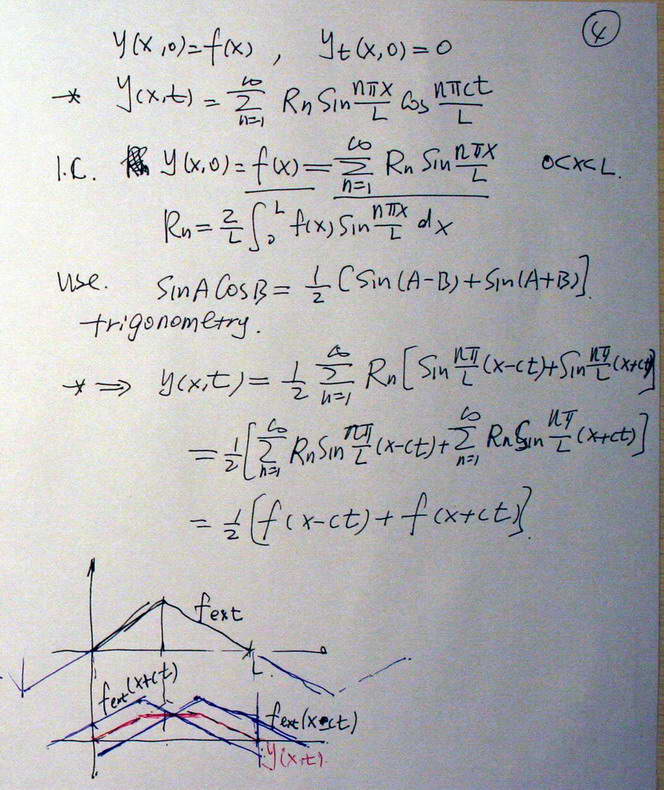 ④
y(x,0)=f(x) , y_t(x,0)=0
* y(x,t) = ∑_{n=1}^{∞} R_n Sin nπx/L Cos nπct/L
I.C. y(x,0)= f(x) = ∑_{n=1}^{∞} R_n Sin nπx/L 0<x<L.
R_n = 2/L ∫_0^L f(x) Sin nπx/L dx
use. SinA CosB = 1/2 [Sin(A-B)+Sin(A+B)].
trigonometry.
* ⟹ y(x,t) = 1/2 ∑_{n=1}^{∞} R_n [Sin nπ/L (x-ct)+Sin nπ/L (x+ct)]
= 1/2 [∑_{n=1}^{∞} R_n Sin nπ/L (x-ct)+ ∑_{n=1}^{∞} R_n Sin nπ/L (x+ct)]
= 1/2 [f(x-ct) + f(x+ct)]
f_ext
L
f_ext(x+ct)
f_ext(x-ct)
y(x,t)